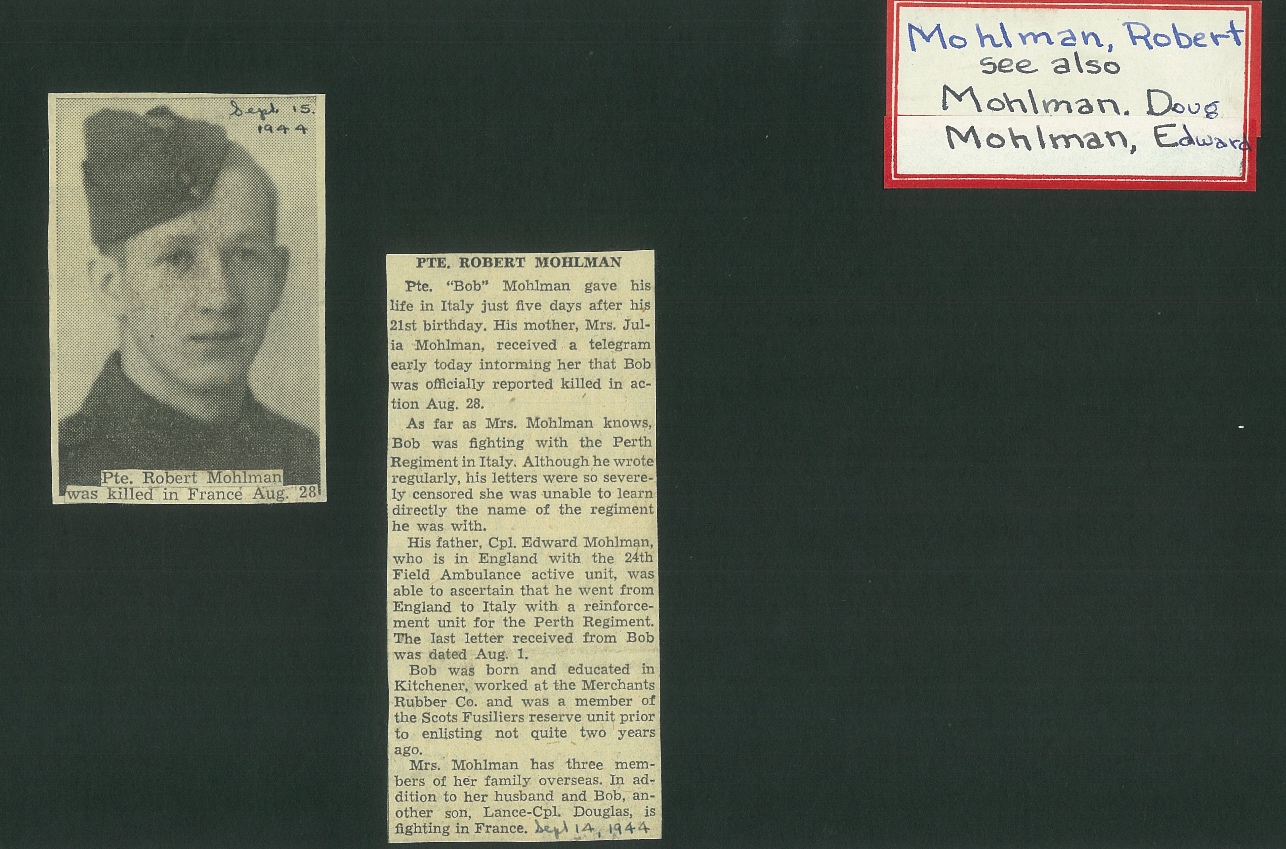 Mohlman, Robert
see also
Mohlman. Doug
Mohlman, Edward
Sept. 15.
1944
Pte. Robert Mohlman
was killed in France Aug. 28
PTE. ROBERT MOHLMAN
Pte. "Bob" Mohlman gave his
life in Italy just five days after his
21st birthday. His mother, Mrs. Jul-
ia Mohlman, received a telegram
early today intorming her that Bob
was officially reported killed in ac-
tion Aug. 28.
As far as Mrs. Mohlman knows,
Bob was fighting with the Perth
Regiment in Italy. Although he wrote
regularly, his letters were so severe-
ly censored she was unable to learn
directly the name of the regiment
he was with.
His father, Cpl. Edward Mohlman,
who is in England with the 24th
Field Ambulance active unit, was
able to ascertain that he went from
England to Italy with a reinforce-
ment unit for the Perth Regiment.
The last letter received from Bob
was dated Aug. 1.
Bob was born and educated in
Kitchener, worked at the Merchants
Rubber Co. and was a member of
the Scots Fusiliers reserve unit prior
to enlisting not quite two years
ago.
Mrs. Mohlman has three mem-
bers of her family overseas. In ad-
dition to her husband and Bob, an-
other son, Lance-Cpl. Douglas, is
fighting in France. Sept 14, 1944